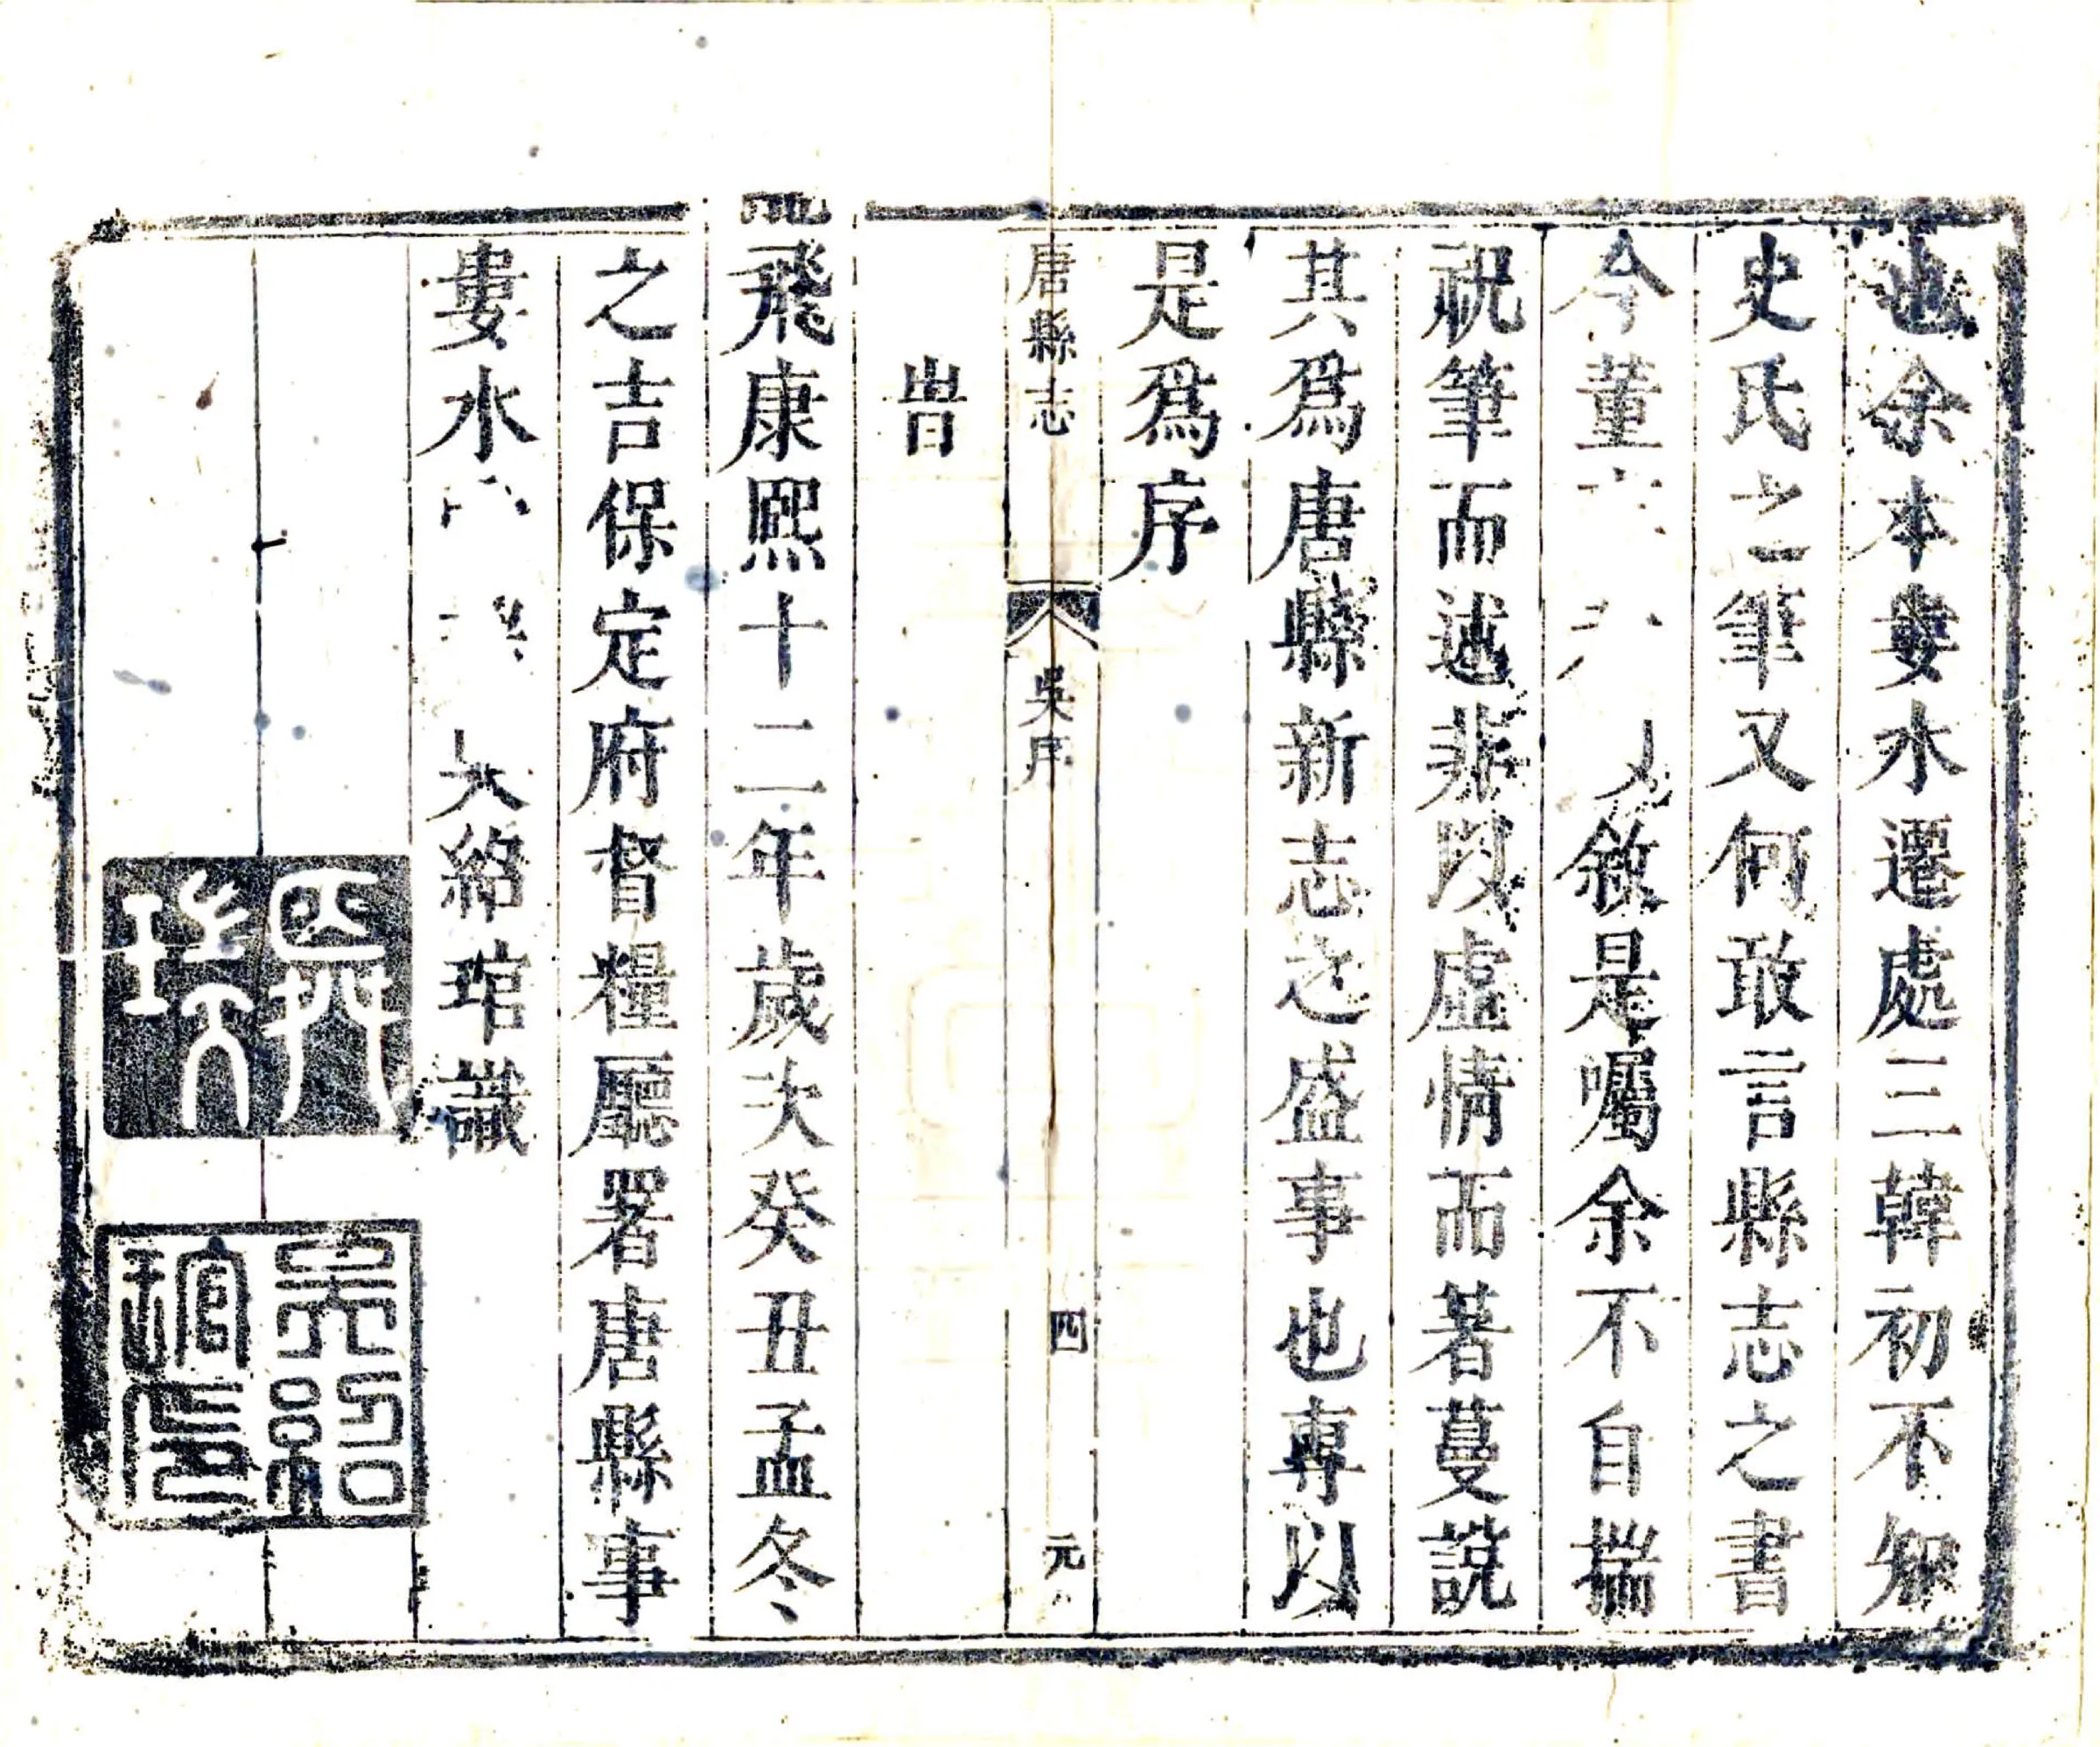 也余本婁水遷處三韓初不知
史氏之筆又何敢言縣志之書
今董敘是囑余不自揣
祝筆而述非以虛情而著蔓說
其爲唐縣新志之盛事也專以
是爲序
唐縣志 吳序 四 元
旹
飛康熙十二年歲次癸丑孟冬
之吉保定府督糧廳署唐縣事
婁水紹琯識
吳紹琯印